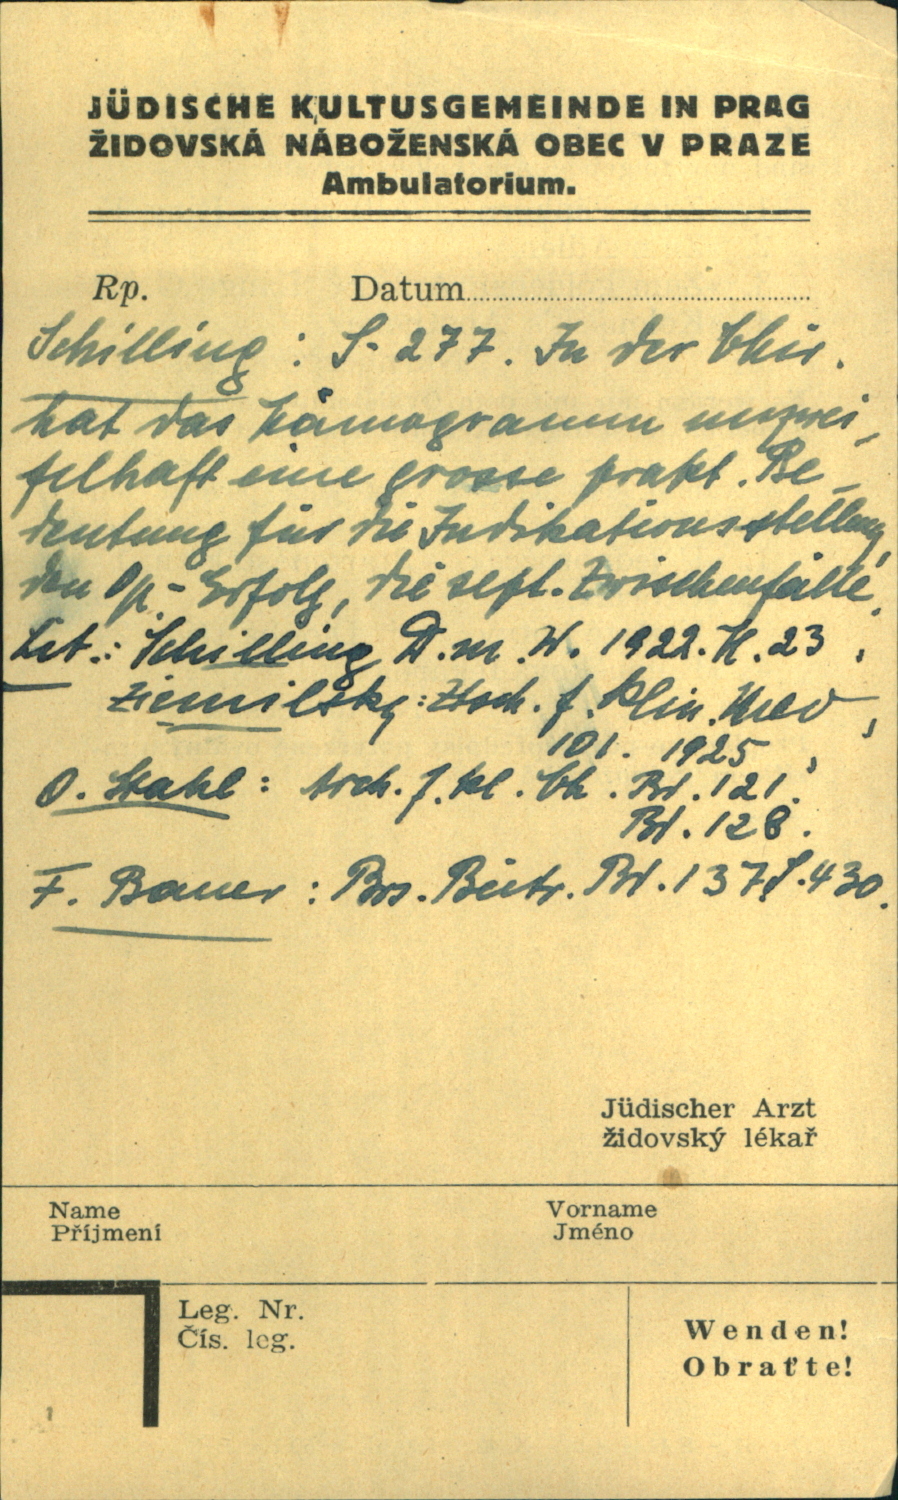 JÜDISCHE KULTUSGEMEINDE IN PRAG
ŽIDOVSKÁ NÁBOŽENSKÁ OBEC V PRAZE
Ambulatorium.
Rp. Datum
Schilling : S. 277. In der Chir.
hat das Hämogramm unzwei-
felhaft eine grosse prakt. Be-
deutung für die Indikationsstellung,
den Op.-Erfolg, die sept. Zwischenfälle.
Lit.: Schilling D.m.W. 1922. H. 23,
Ziemilsky: Ztsch. f. klin. Med,
101. 1925,
O. Stahl: Arch. f. kl. Ch. Bd. 121.
Bd. 128.
F. Bauer : Brs. Beitr. Bd. 137. S. 430.
Jüdischer Arzt
židovský lékař
Name Vorname
Příjmení Jméno
Leg. Nr.
Čís. leg.
Wenden!
Obraťte!